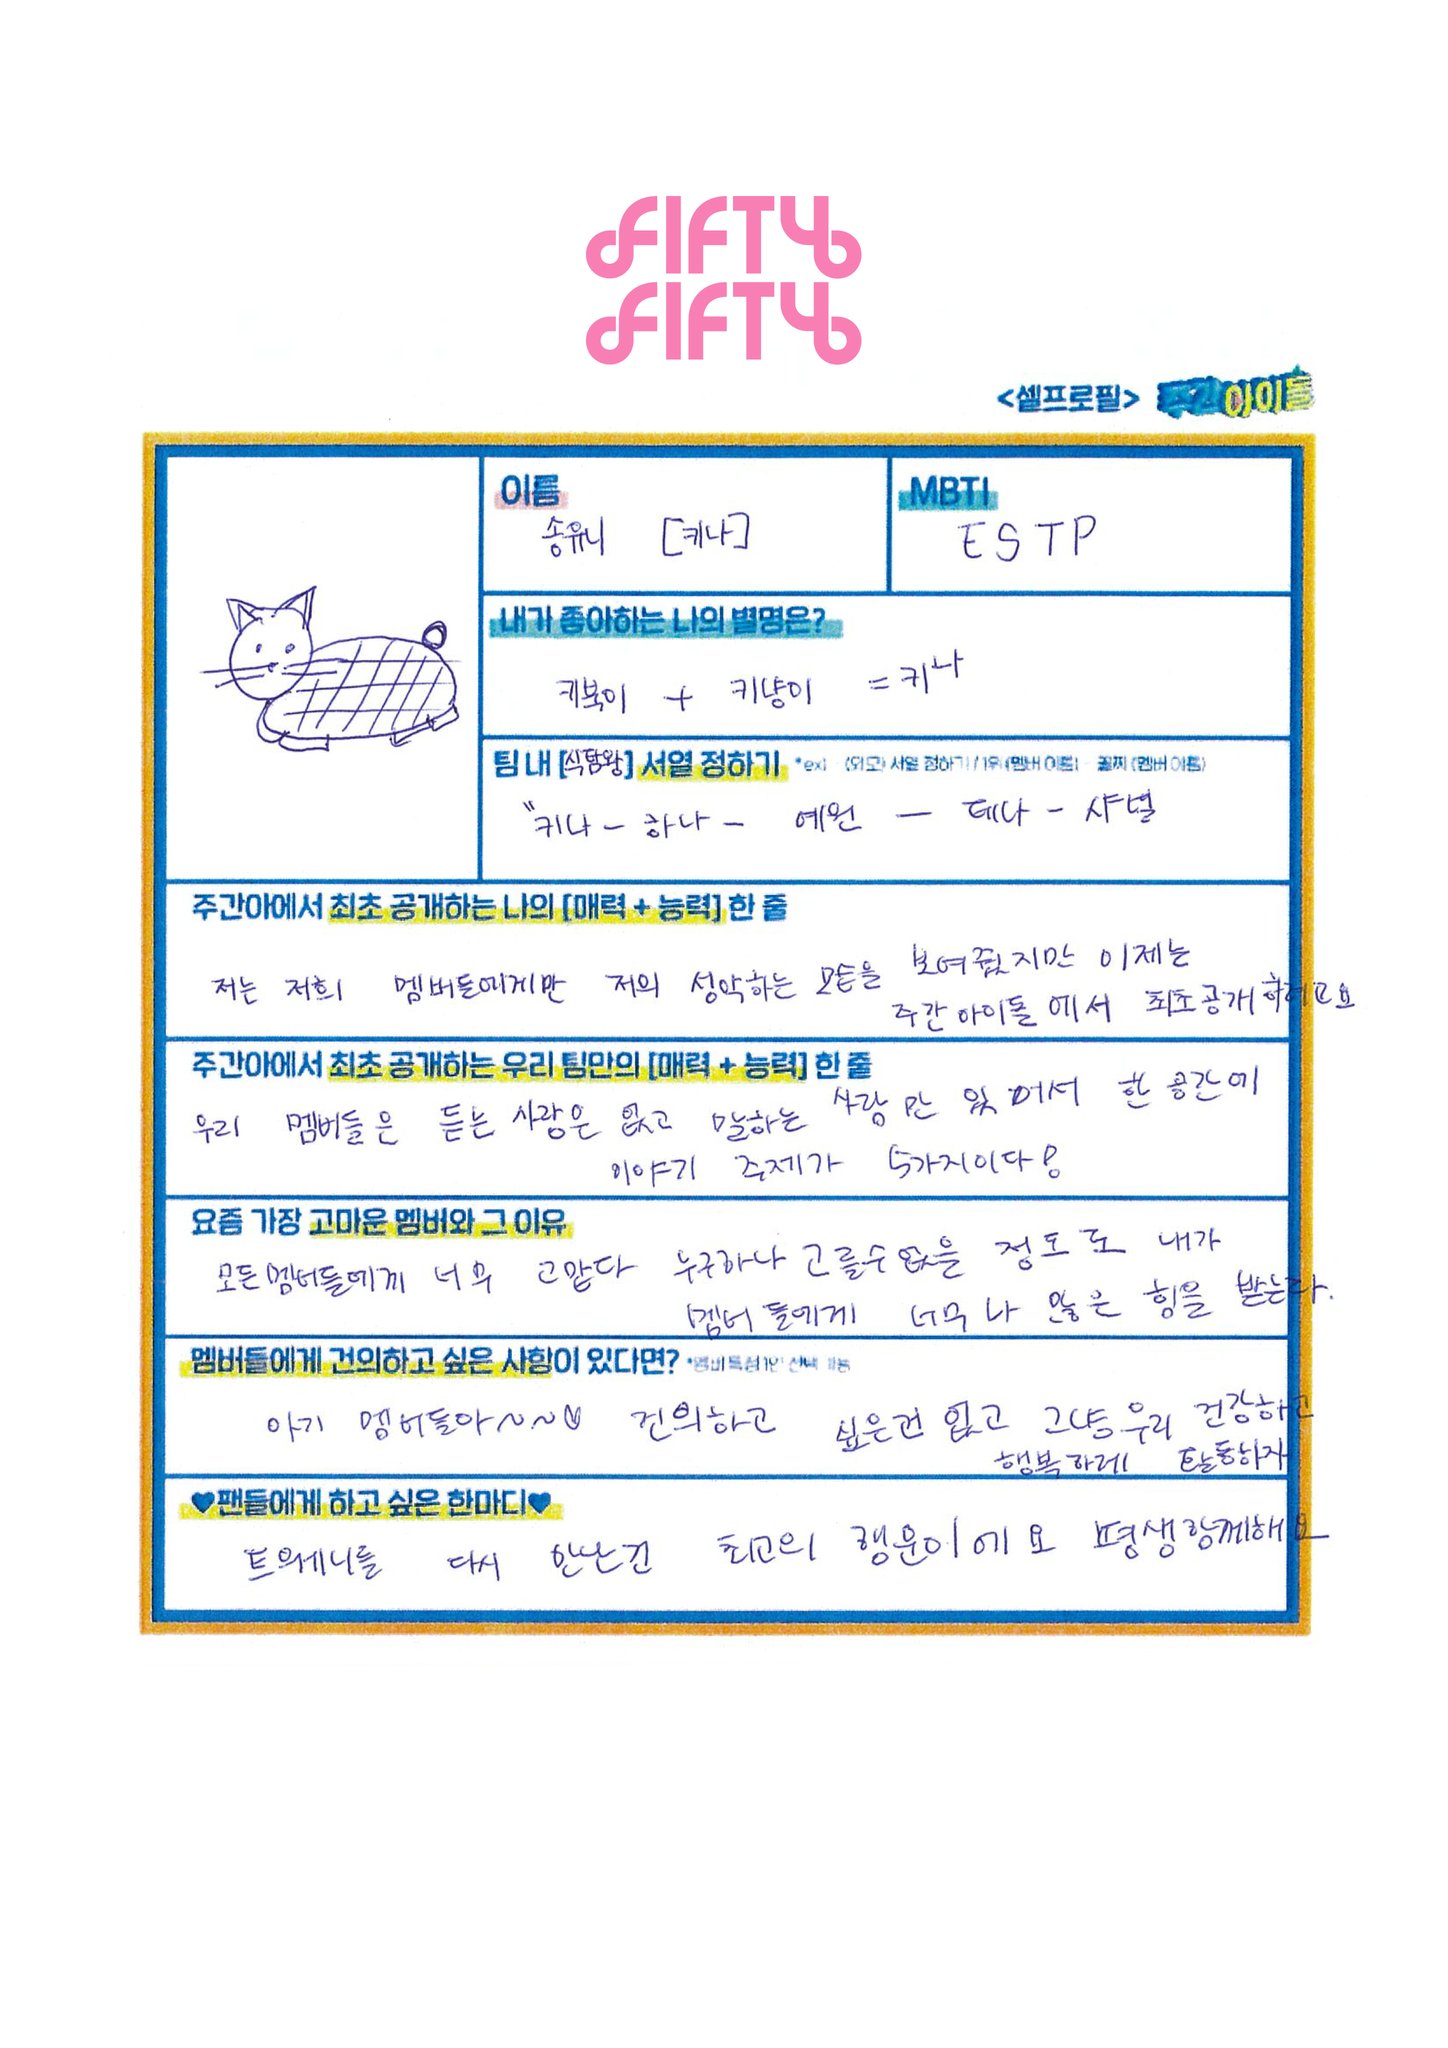 FIFTY
FIFTY
<셀프로필> 주간아이돌
이름
송유니 [키나]
MBTI
ESTP
내가 좋아하는 나의 별명은?
키북이 + 키냥이 = 키나
팀 내 [식탐왕] 서열 정하기 *ex) (외모) 서열 정하기 / 1위 (멤버 이름) - 꼴찌 (멤버 이름)
"키나 - 하나 - 예원 - 테나 - 샤넬
주간아에서 최초 공개하는 나의 [매력 + 능력] 한 줄
저는 저희 멤버들에게만 저의 성악하는 모습을 보여줬지만 이제는
주간아이돌에서 최초공개하려고요
주간아에서 최초 공개하는 우리 팀만의 [매력 + 능력] 한 줄
우리 멤버들은 듣는 사람은 없고 말하는 사람만 있어서 한 공간에
이야기 주제가 5가지이다!
요즘 가장 고마운 멤버와 그 이유
모든멤버들에게 너무 고맙다 누구하나 고를수없을 정도로 내가
멤버들에게 너무나 많은 힘을 받는다.
멤버들에게 건의하고 싶은 사항이 있다면? *멤버 특정 1인 선택 가능
아기 멤버들아~~~♡ 건의하고 싶은건 없고 그냥 우리 건강하고
행복하게 활동하자
♥팬들에게 하고 싶은 한마디♥
트웨니를 다시 만난건 최고의 행운이에요 평생함께해요